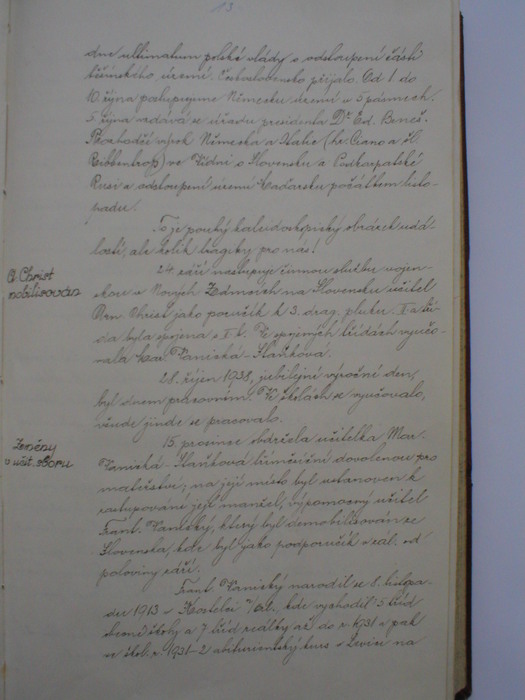 13
dne ultimatum polské vlády o odstoupení části
těšínského území. Československo přijalo. Od 1 do
10. října postupujeme Německu území v 5 pásmech.
5. října vzdává se úřadu presidenta Dr. Ed. Beneš.
Rozhodčí výrok Německa a Italie (hr. Ciano a šl.
Ribbentrop) ve Vídni o Slovensku a Podkarpatské
Rusi a odstoupení území Maďarsku počátkem listo-
padu.
To je pouhý kaleidoskopický obrázek udá-
lostí, ale kolik tragiky pro nás!
O. Christ
mobilisován
24. září nastupuje činnou službu vojen-
skou v Nových Zámcích na Slovensku učitel
Christ jako poručík k 3. drag. pluku. II a tří-
da byla spojena s II b. Ve spojených třídách vyučo-
vala Mar. Vanická - Slaňková.
28. říjen 1938, jubilejní výroční den,
byl dnem pracovním. Ve školách se vyučovalo,
všude jinde se pracovalo.
Změny
v učit. sboru
15. prosince obdržela učitelka Mar.
Vanická - Slaňková tříměsíční dovolenou pro
mateřství; na její místo byl ustanoven k
zastupování její manžel, výpomocný učitel
Frant. Vanický, který byl demobilisován ze
Slovenska, kde byl jako podporučík v zál. od
poloviny září.
Frant. Vanický narodil se 8. listopa-
du 1913 v Kostelci n/Orl., kde vychodil 5 tříd
obecné školy a 7 tříd reálky až do r. 1931 a pak
ve škol. r. 1931-2 abiturientský kurs v Levici na